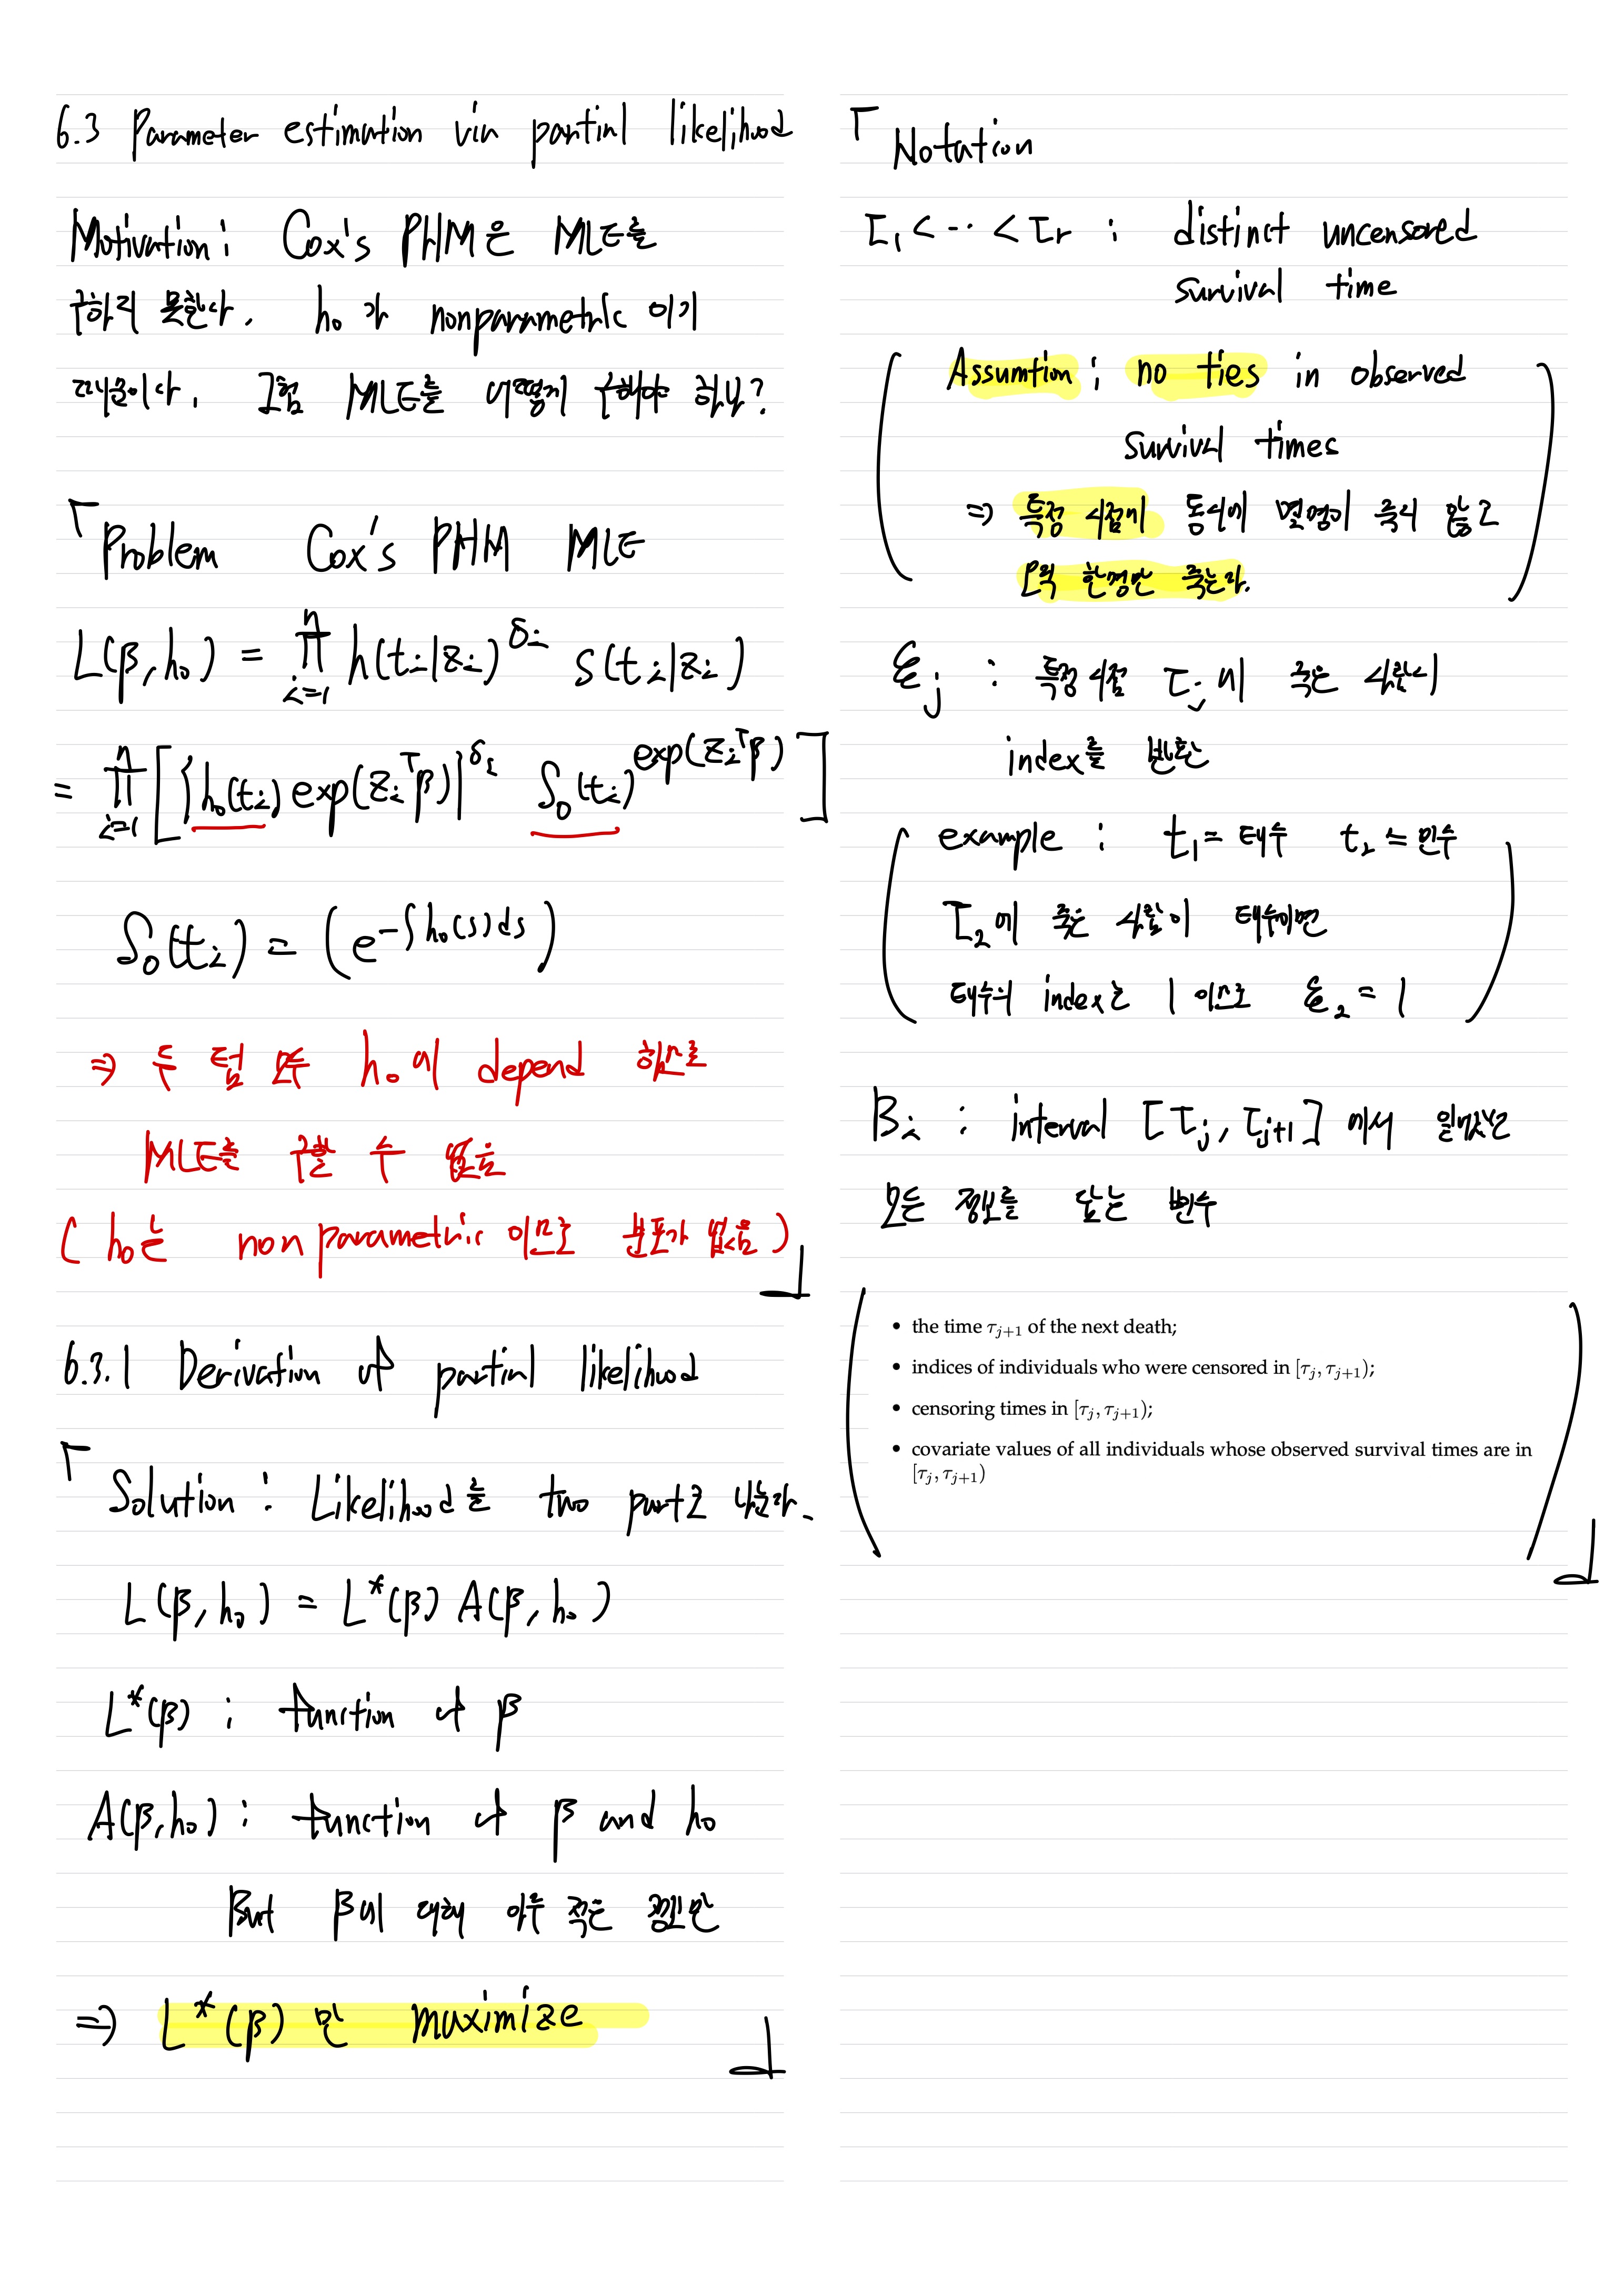 6.3 Parameter estimation via partial likelihood
Motivation : Cox's PHM은 MLE를
구하지 못한다. h₀가 nonparametric 이기
때문이다. 그럼 MLE를 어떻게 구해야 하나?
「Problem Cox's PHM MLE
L(β, h₀) = ∏ᵢ₌₁ⁿ h(tᵢ|zᵢ)^δᵢ S(tᵢ|zᵢ)
= ∏ᵢ₌₁ⁿ [ {h₀(tᵢ) exp(zᵢᵀβ)}^δᵢ S₀(tᵢ)^exp(zᵢᵀβ) ]
S₀(tᵢ) = (e^-∫h₀(s)ds)
⇒ 두 텀 모두 h₀에 depend 함으로
MLE를 구할 수 없음
( h₀는 non parametric 이므로 분포가 없음 ) 」
6.3.1 Derivation of partial likelihood
「Solution : Likelihood를 two part로 나눈다.
L(β, h₀) = L*(β) A(β, h₀)
L*(β) : function of β
A(β, h₀) : function of β and h₀
But β에 대해 아주 적은 정보만
⇒ L*(β) 만 maximize 」
「Notation
τ₁ < ··· < τᵣ : distinct uncensored
survival time
Assumtion : no ties in observed
survival times
⇒ 특정 시점에 동시에 몇명이 죽지 않고
오직 한명만 죽는다.
ξⱼ : 특정시점 τⱼ에 죽은 사람의
index를 반환
example : t₁ = 태수 t₂ = 민수
τ₂에 죽은 사람이 태수이면
태수의 index는 1 이므로 ξ₂ = 1
Bᵢ : interval [τⱼ, τⱼ₊₁] 에서 일어난
모든 정보를 담는 변수
• the time τⱼ₊₁ of the next death;
• indices of individuals who were censored in [τⱼ, τⱼ₊₁);
• censoring times in [τⱼ, τⱼ₊₁);
• covariate values of all individuals whose observed survival times are in
[τⱼ, τⱼ₊₁) 」